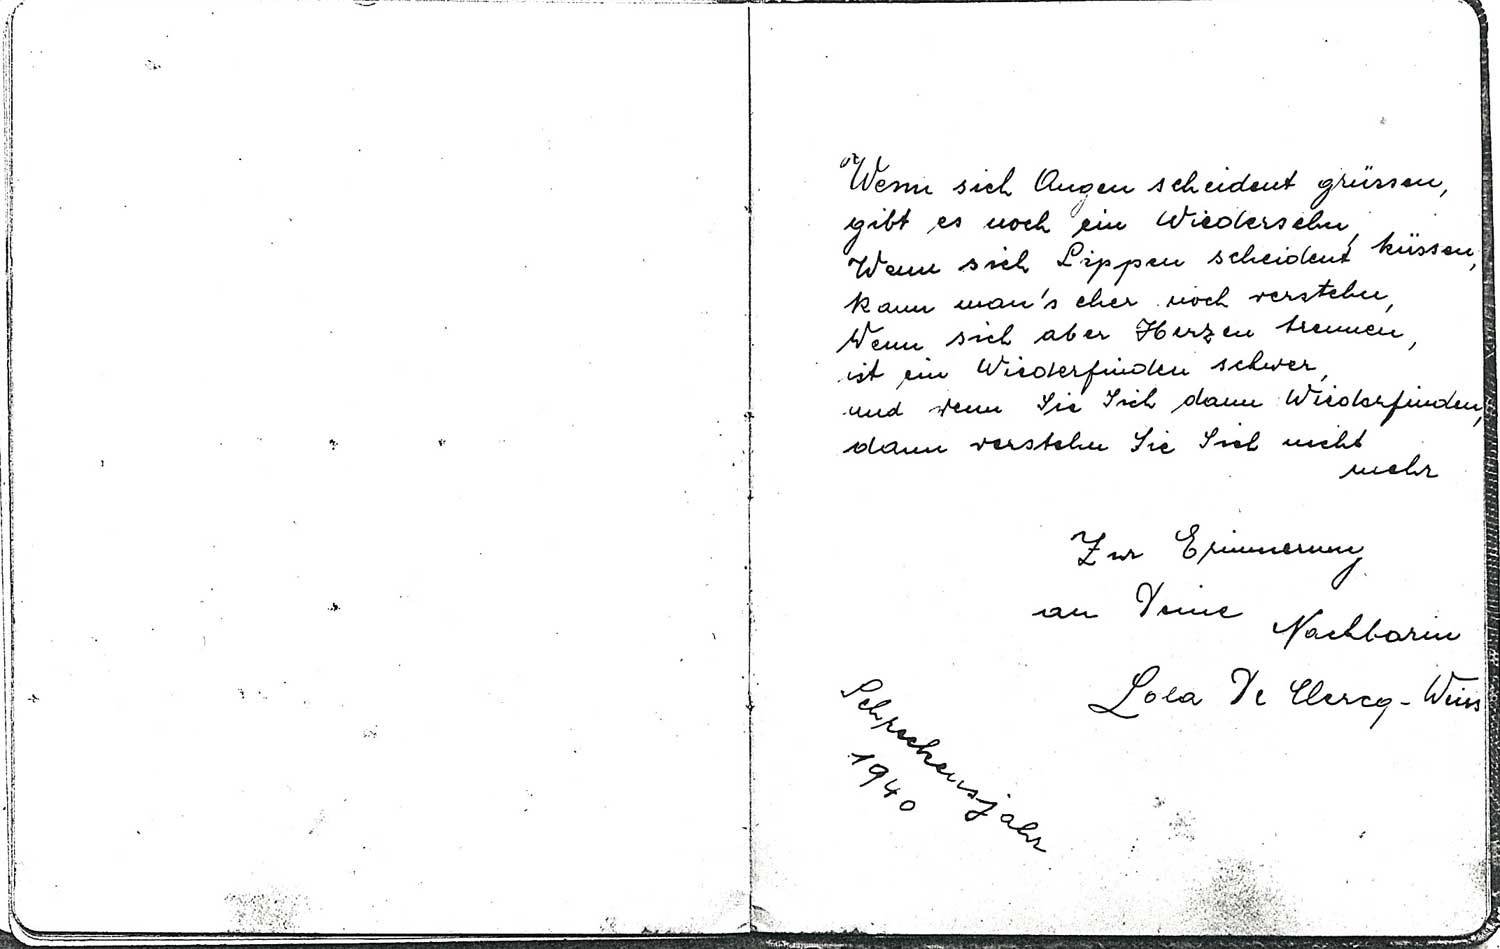 Wenn sich Augen scheident grüssen,
gibt es noch ein Wiedersehn,
Wenn sich Lippen scheident küssen,
kann man's eher noch verstehn,
Wenn sich aber Herzen trennen,
ist ein Wiederfinden schwer,
und wenn Sie Sich dann Wiederfinden,
dann verstehn Sie Sich nicht
mehr
Zur Erinnerung
an Deine Nachbarin
Lola De Clercq-Weiss
Schreckensjahr
1940